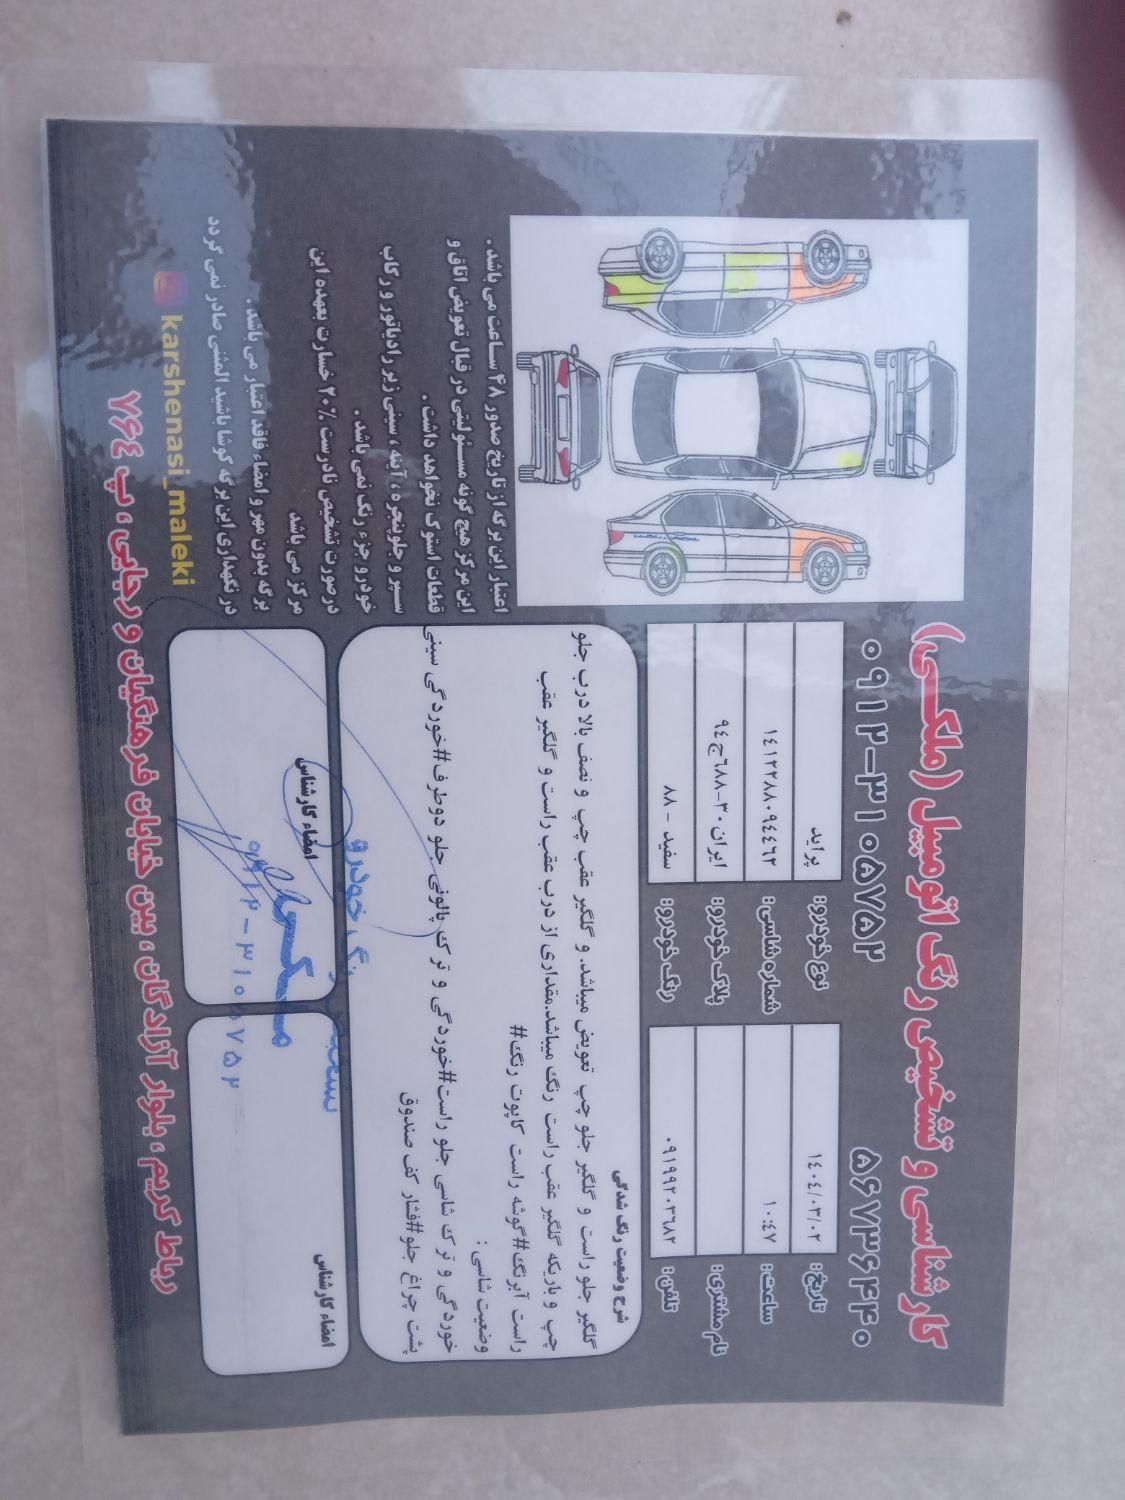 کارشناسی و تشخیص رنگ اتومبیل (ملکی)
۵۶۷۳۶۴۴۰
۰۹۱۲-۳۱۰۵۷۵۲
تاریخ: ۱۴۰۴/۰۳/۰۲
ساعت: ۱۰:۴۷
نام مشتری:
تلفن: ۰۹۱۹۹۲۰۳۶۸۲
نوع خودرو: پراید
شماره شاسی: ۱۴۱۲۲۸۸۰۹۴۴۶۲
پلاک خودرو: ایران ۳۰-۶۸۸ج۹۴
رنگ خودرو: سفید - ۸۸
شرح وضعیت رنگ شدگی
گلگیر جلو راست و گلگیر جلو چپ تعویض میباشد. و گلگیر عقب چپ و نصف بالا درب جلو
چپ و باریکه گلگیر عقب راست رنگ میباشد.مقداری از درب عقب راست و گلگیر عقب
راست آبرنگ#گوشه راست کاپوت رنگ#
وضعیت شاسی :
خوردگی و ترک شاسی جلو راست#خوردگی و ترک پالونی جلو دوطرف#خوردگی سینی
پشت چراغ جلو#فشار کف صندوق
امضاء کارشناس
امضاء کارشناس
رنگ خودرو
۰۹۱۲-۳۱۰۵۷۵۲
اعتبار این برگه از تاریخ صدور ۴۸ ساعت می باشد.
این مرکز هیچ گونه مسئولیتی در قبال تعویض اتاق و
قطعات استوک نخواهد داشت.
سپر و جلوپنجره ، آینه ، سینی زیر رادیاتور و رکاب
خودرو جزء رنگ نمی باشد.
در صورت تشخیص نادرست ۲۰٪ خسارت بعهده این
مرکز می باشد
برگه بدون مهر و امضاء فاقد اعتبار می باشد.
در نگهداری این برگه کوشا باشید المثنی صادر نمی گردد
karshenasi_maleki
رباط کریم ، بلوار آزادگان ، بین خیابان فرهنگیان و رجایی ، پ ۷۶۴